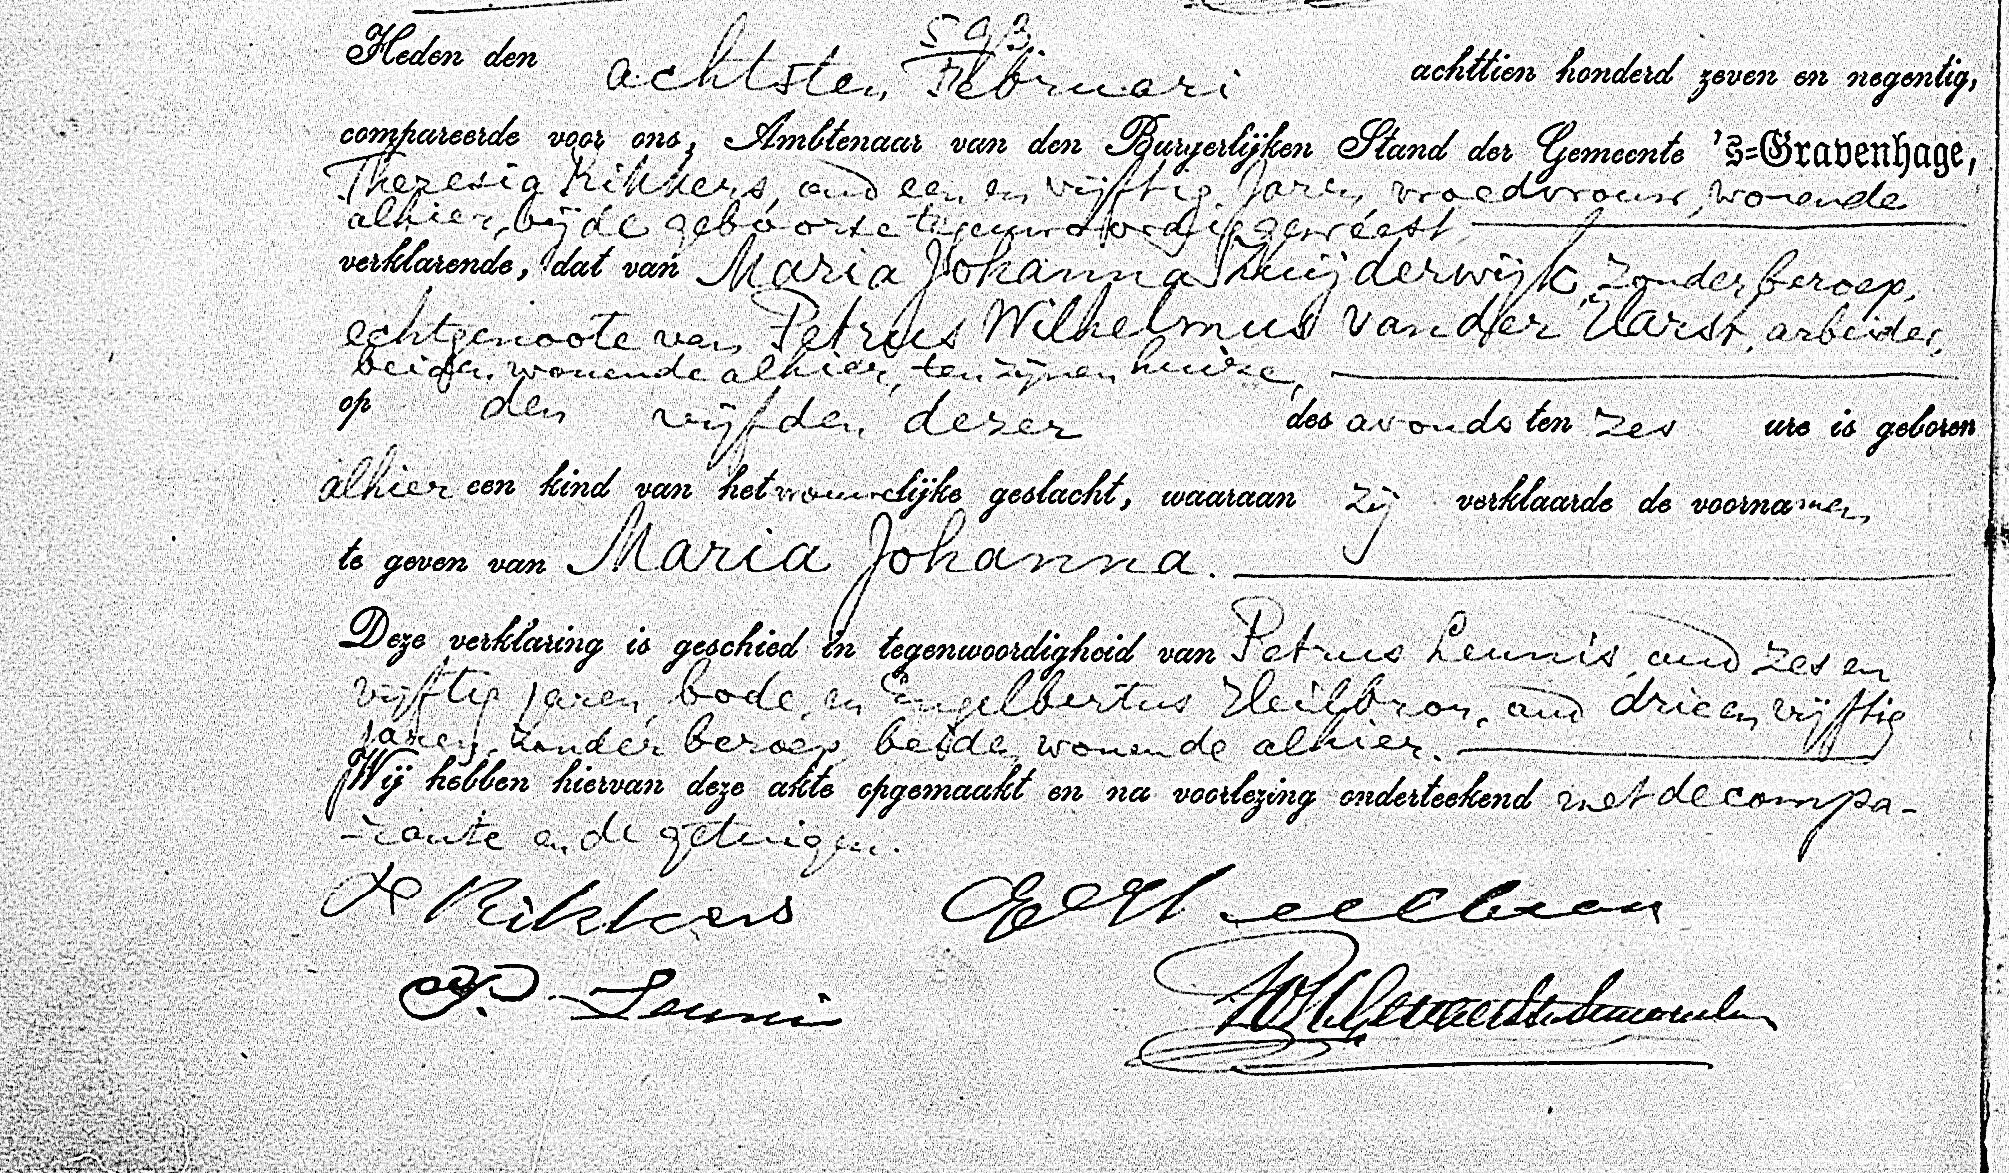 593
Heden den achtsten Februari achttien honderd zeven en negentig,
compareerde voor ons, Ambtenaar van den Burgerlijken Stand der Gemeente 's=Gravenhage,
Theresia Rikkers, oud een en vijftig Jaren, vroedvrouw, wonende
alhier, bij de geboorte tegenwoordig geweest
verklarende, dat van Maria Johanna Zuijderwijk, zonder beroep,
echtgenoote van Petrus Wilhelmus van der Harst, arbeider,
beiden wonende alhier, ten zijnen huize,
op den vijfden dezer des avonds ten zes ure is geboren
alhier een kind van het vrouwelijke geslacht, waaraan zij verklaarde de voornamen
te geven van Maria Johanna.
Deze verklaring is geschied in tegenwoordigheid van Petrus Leunis, oud zes en
vijftig jaren, bode, en Engelbertus Heilbron, oud drie en vijftig
jaren, zonder beroep, beiden wonende alhier.
Wij hebben hiervan deze akte opgemaakt en na voorlezing onderteekend met de compa-
-rante en de getuigen.
Rikkers
P. Leunis